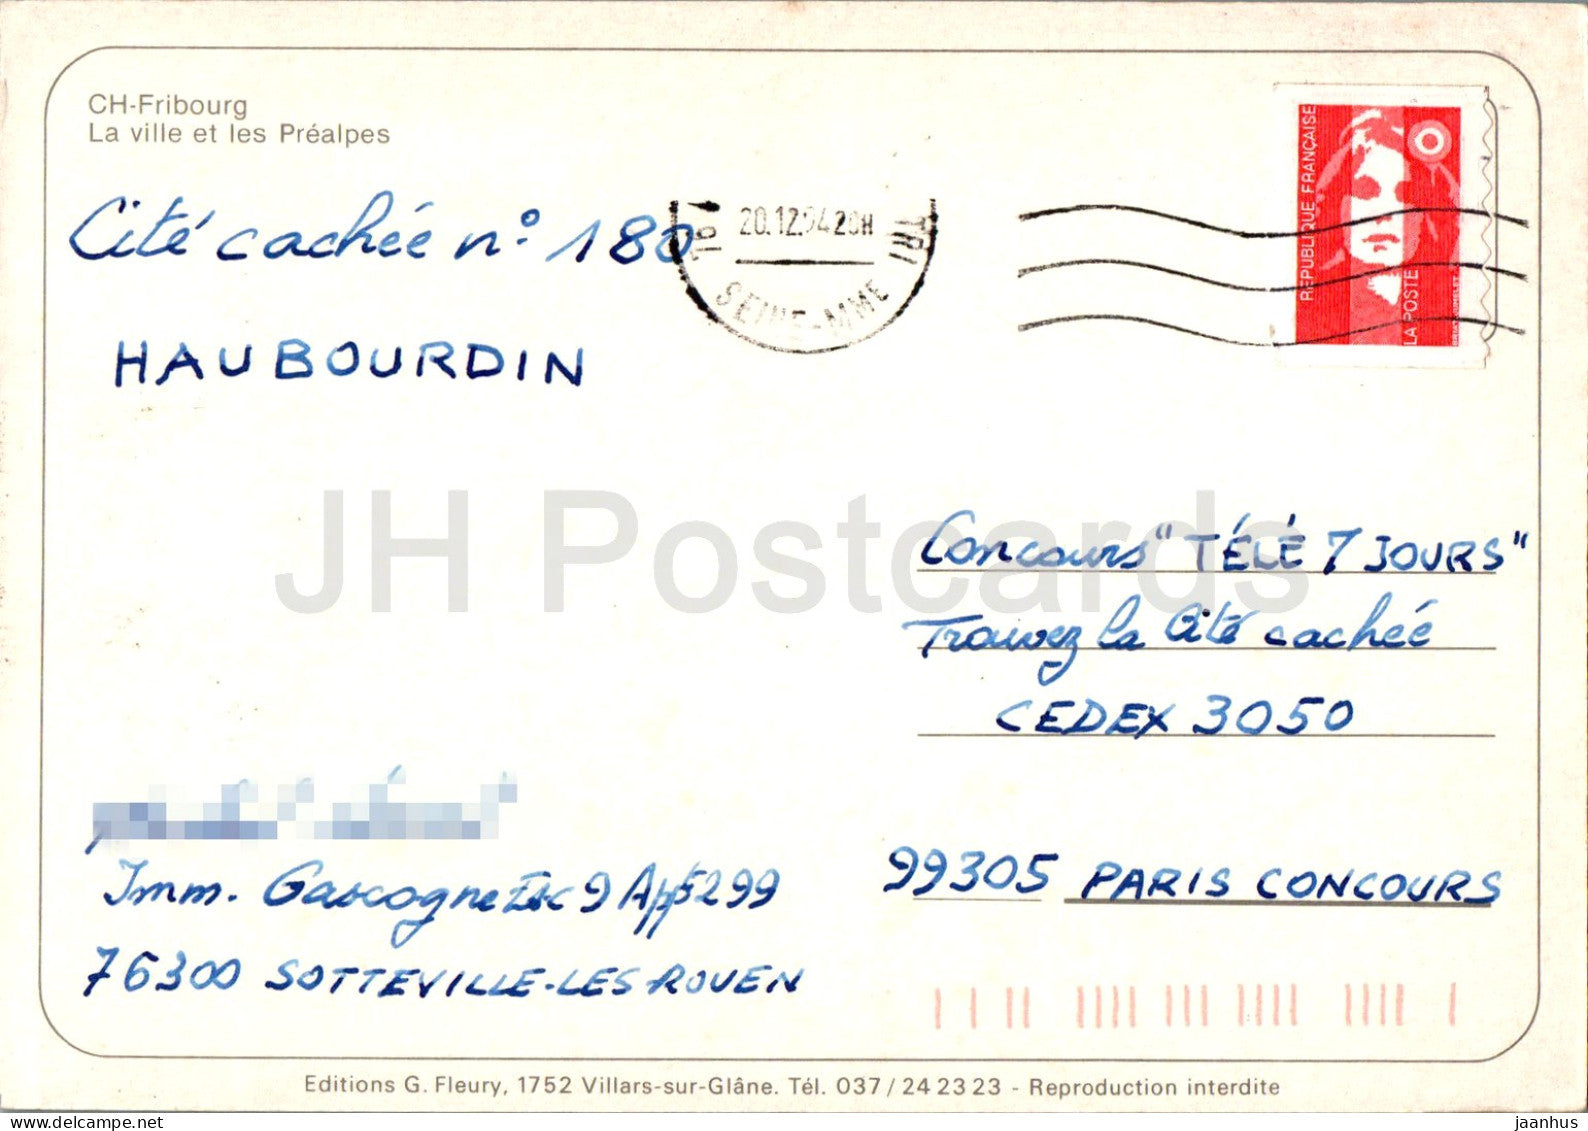 CH-Fribourg
La ville et les Préalpes
Cité cachée n° 180
HAUBOURDIN
20.12.94 20H
TRI
SEINE-MME
RÉPUBLIQUE FRANÇAISE
LA POSTE
JH Postcards
Concours "TÉLÉ 7 JOURS"
Trouvez la Cité cachée
CEDEX 3050
99305 PARIS CONCOURS
Imm. Gascogne Esc 9 Appt 299
76300 SOTTEVILLE-LES ROUEN
Editions G. Fleury, 1752 Villars-sur-Glâne. Tél. 037/24 23 23 - Reproduction interdite
delcampe.net
jaanhus